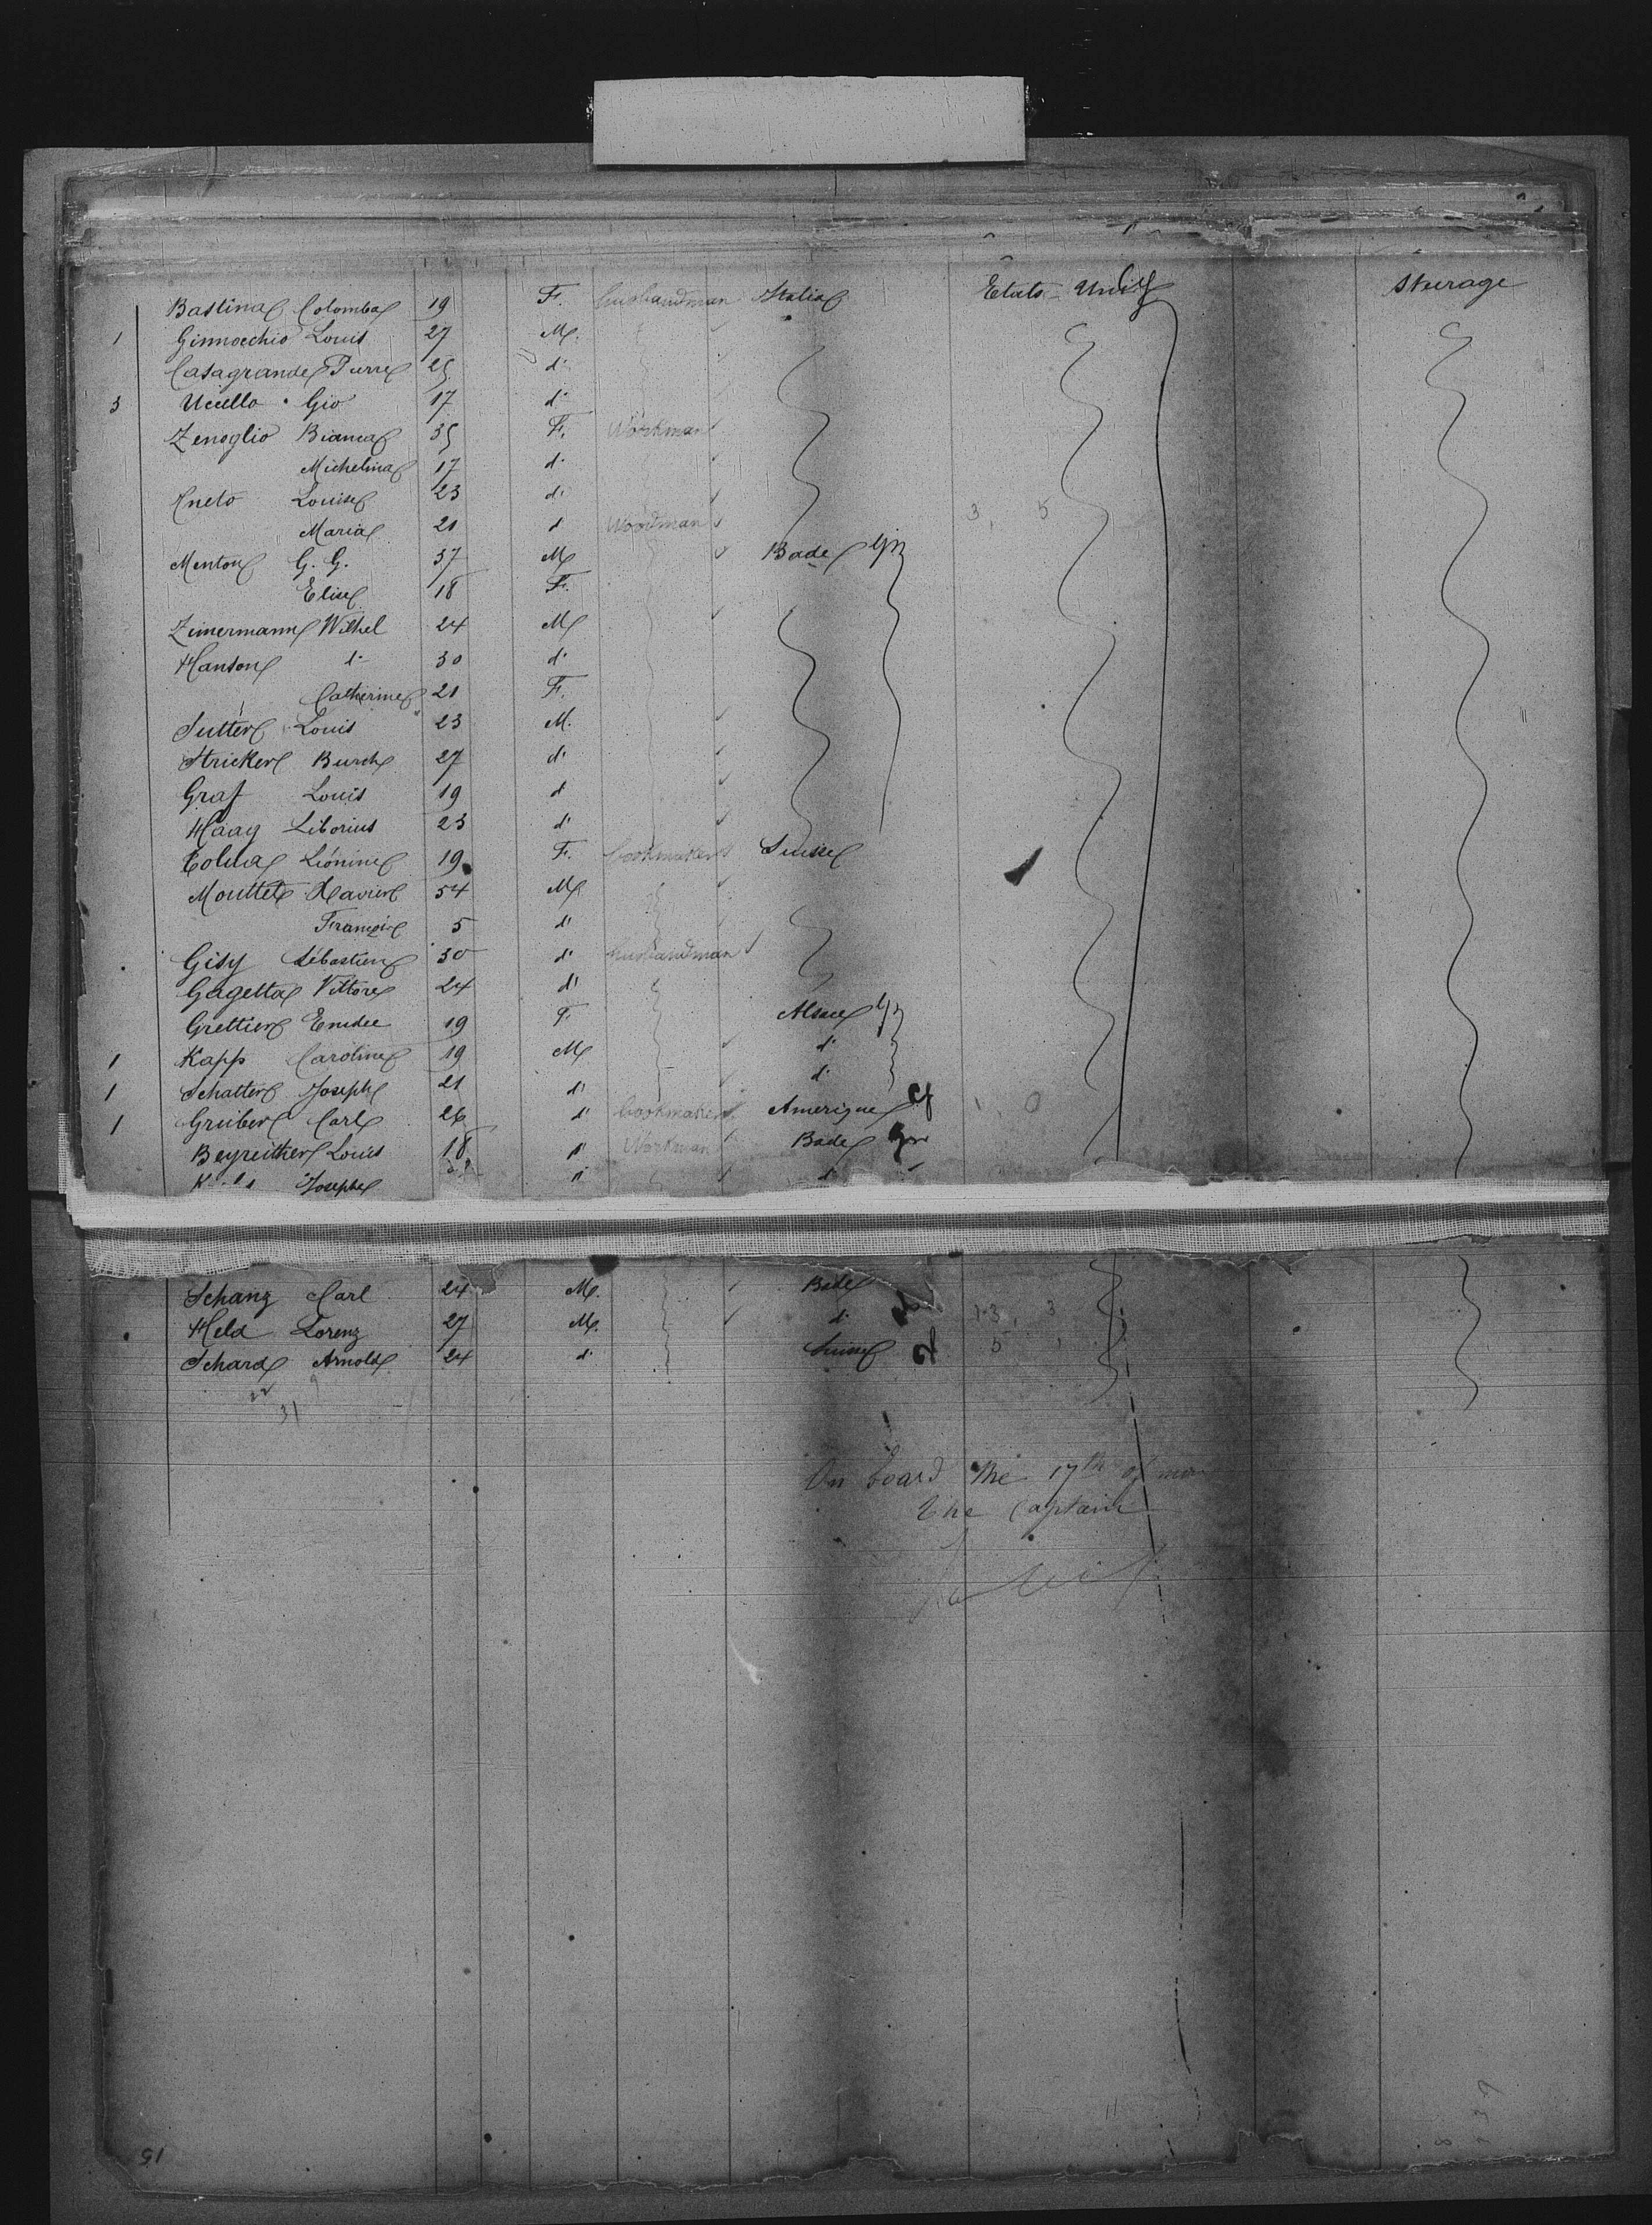 Bastina Colomba 19 F. husbandman Italia Etats-Unis Sterage
1 Ginnocchio Louis 27 M.
Casagrande Pierre 25 d°
3 Ucello Gio 17 d°
Zenoglio Bianca 35 F. Workman
Michelina 17 d°
Cneto Louise 23 d°
Maria 21 d Woodman 3, 5
Menton G. G. 37 M Bade
Elise 18 F.
Zimermann Wilhel 24 M
Hanson d° 30 d°
Catherine 21 F.
Sutter Louis 23 M.
Stricker Burch 27 d°
Graf Louis 19 d
Haag Liborius 23 d°
Léonine 19 F. Suisse
Mouttet Xavier 54 M
François 5 d°
Gisy Sébastien 30 d° husbandman
Gagetta Vittore 24 d°
Grettier 19 F. Alsace
1 Kapp Caroline 19 M d°
1 Schatter Joseph 21 d° d°
1 Gruber Carl 26 d° Amerique 1, 0
Beyreither Louis 18 d° Workman Bade
Joseph d° d°
Schanz Carl 24 M. Bade
Held Lorenz 27 M. d° 13, 3
Schard Arnold 24 d° Suisse 5
31
On board the 17th of
The Captain
51